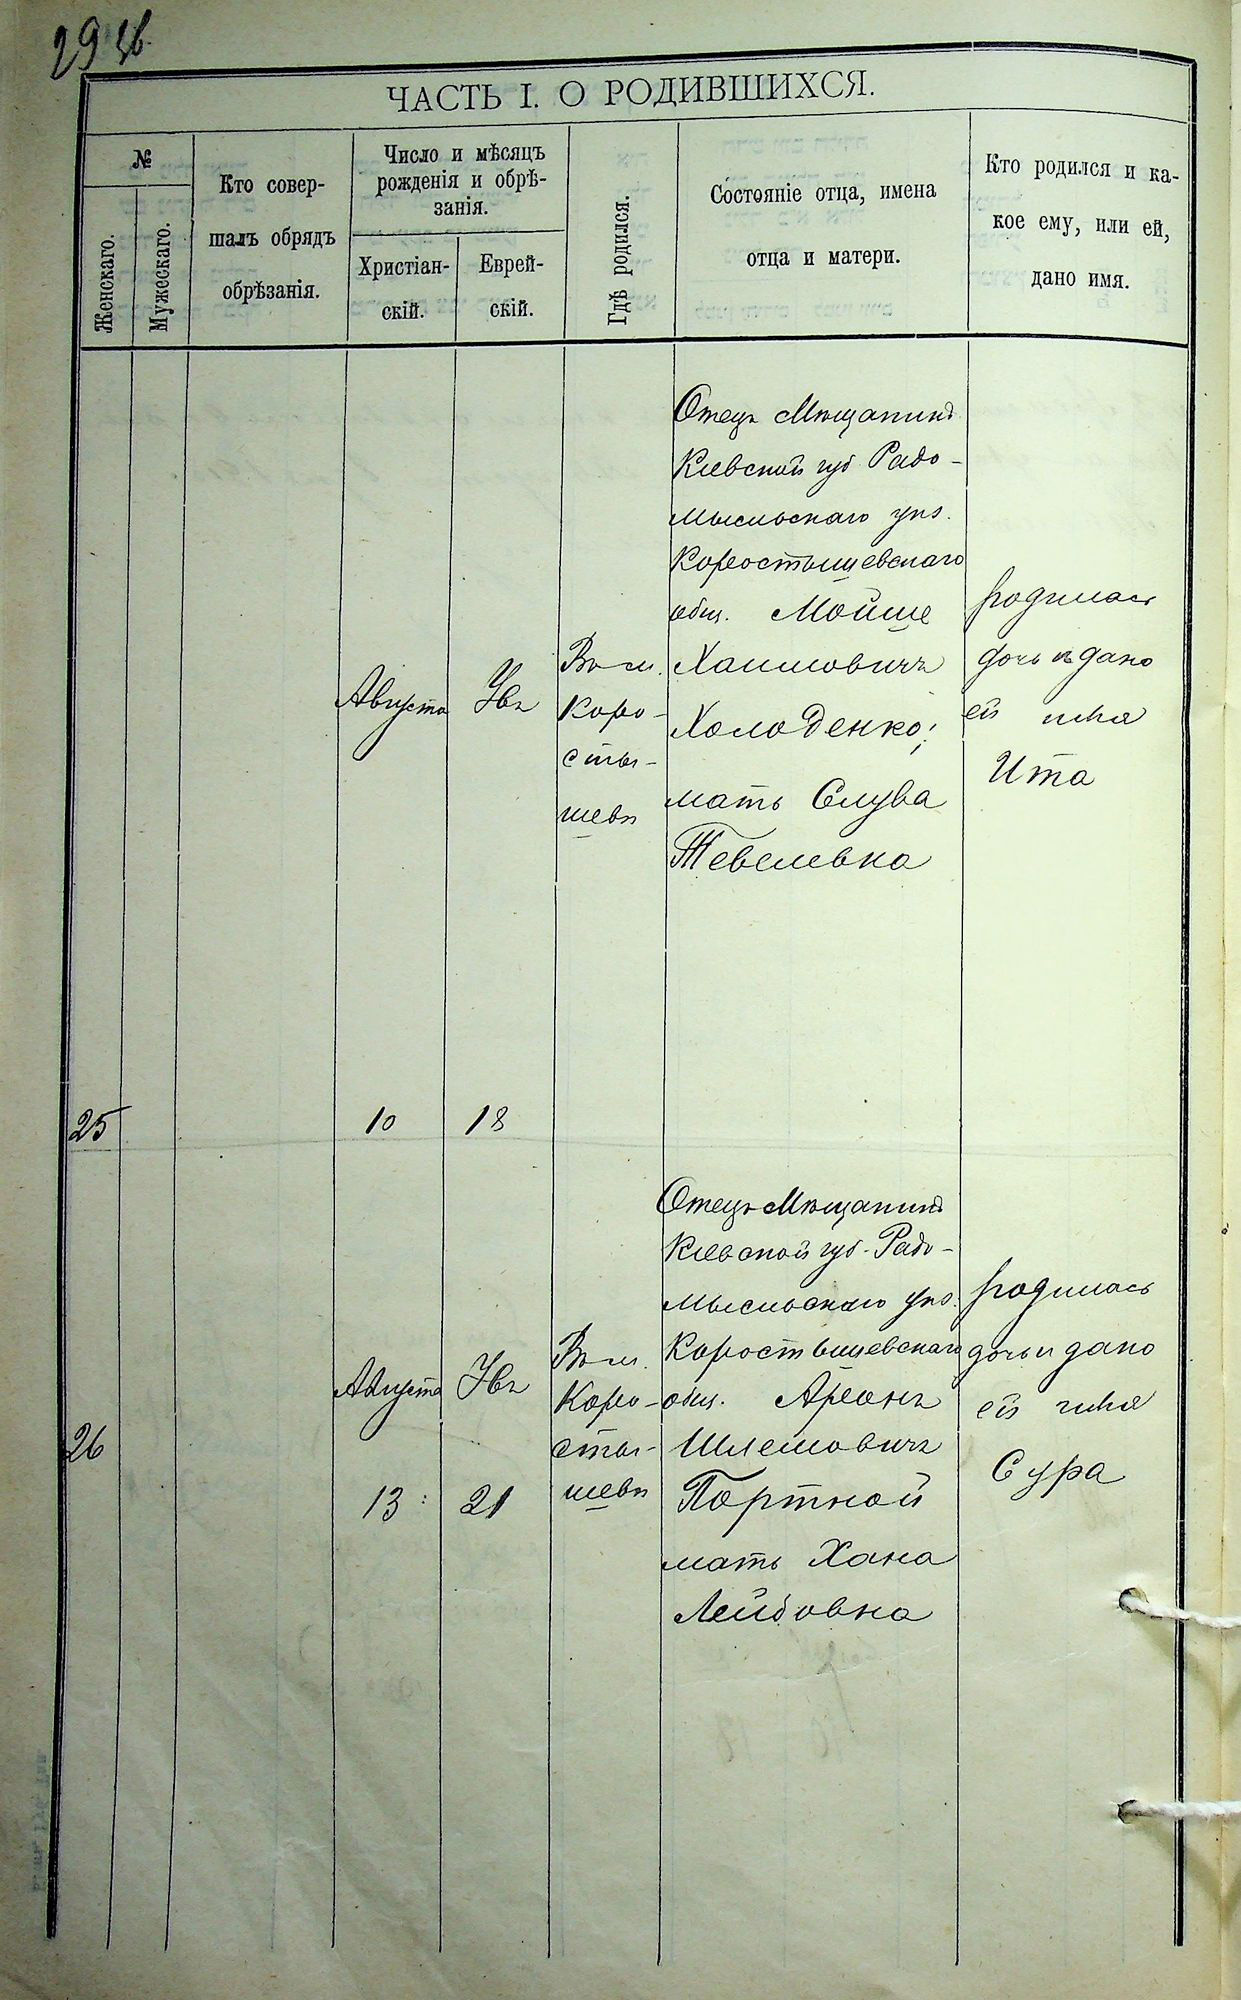 29 зв.
ЧАСТЬ I. О РОДИВШИХСЯ.
№
Женскаго.
Мужескаго.
Кто совер-
шалъ обрядъ
обрѣзанія.
Число и мѣсяцъ
рожденія и обрѣ-
занія.
Христіан-
скій.
Еврей-
скій.
Гдѣ родился.
Состояніе отца, имена
отца и матери.
Кто родился и ка-
кое ему, или ей,
дано имя.
25
Августа
10
18
Въ м.
Коро-
сты-
шевѣ
Отецъ Мѣщанинъ
Кіевской губ Радо-
мысльскаго уѣз.
Коростышевскаго
общ. Мойше
Хаимовичъ
Холоденко;
мать Слува
Тевелевна
родилась
дочь и дано
ей имя
Ита
26
Августа
13
21
Въ м.
Коро-
сты-
шевѣ
Отецъ Мѣщанинъ
Кіевской губ. Радо-
мысльскаго уѣз.
Коростышевскаго
общ. Аронъ
Шлемовичъ
Портной
мать Хана
Лейбовна
родилась
дочь и дано
ей имя
Сура